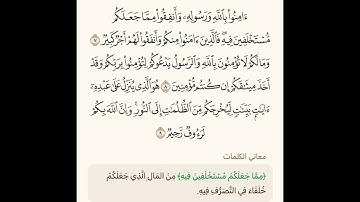 ءَامِنُوا۟ بِٱللَّهِ وَرَسُولِهِۦ وَأَنفِقُوا۟ مِمَّا جَعَلَكُم
مُّسْتَخْلَفِينَ فِيهِ ۖ فَٱلَّذِينَ ءَامَنُوا۟ مِنكُمْ وَأَنفَقُوا۟ لَهُمْ أَجْرٌ كَبِيرٌ ٧
وَمَا لَكُمْ لَا تُؤْمِنُونَ بِٱللَّهِ ۙ وَٱلرَّسُولُ يَدْعُوكُمْ لِتُؤْمِنُوا۟ بِرَبِّكُمْ وَقَدْ
أَخَذَ مِيثَـٰقَكُمْ إِن كُنتُم مُّؤْمِنِينَ ٨ هُوَ ٱلَّذِى يُنَزِّلُ عَلَىٰ عَبْدِهِۦٓ
ءَايَـٰتٍۭ بَيِّنَـٰتٍ لِّيُخْرِجَكُم مِّنَ ٱلظُّلُمَـٰتِ إِلَى ٱلنُّورِ ۚ وَإِنَّ ٱللَّهَ بِكُمْ
لَرَءُوفٌ رَّحِيمٌ ٩
معاني الكلمات
﴿مِمَّا جَعَلَكُم مُّسْتَخْلَفِينَ فِيهِ﴾ مِنَ المَالِ الَّذِي جَعَلَكُمْ
خُلَفَاءَ فِي التَّصَرُّفِ فِيهِ.